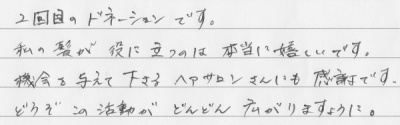 2回目のドネーションです。
私の髪が役に立つのは本当に嬉しいです。
機会を与えて下さるヘアサロンさんにも感謝です。
どうぞこの活動がどんどん広がりますように。